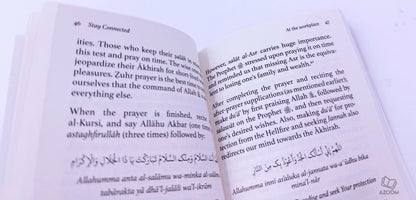 46 Stay Connected
ities. Those who keep their salāt in
this test and pray on time. The wo
jeopardize their Ākhirah for short
pleasures. Ẓuhr prayer is the be
ourselves that the command of Allah
everything else.
When the prayer is finished, recite
al-Kursi, and say Allāhu Akbar (one
astaghfirullāh (three times) followed by:
اللَّهُمَّ أَنْتَ السَّلَامُ وَمِنْكَ السَّلَامُ تَبَارَكْتَ يَا ذَا الْجَلَالِ وَالْإِكْرَامِ
Allahumma anta al-salāmu wa-minka al-salāmu
tabārakta yā dhā'l-jalāli wa'l-ikrām
At the workplace 47
However, salāt al-Asr carries huge importance.
The Prophet ﷺ stressed upon praying it on time
and reminded us that missing Asr is the equiva-
lent to losing one's family and wealth.
After completing the prayer and reciting the
after-prayer supplications (as mentioned earlier)
make du'ā' by first praising Allah, followed by
salawāt on the Prophet ﷺ, and then requesting
one's desired wishes. Also, making du'ā' for pro-
tection from the Hellfire and seeking Jannah
redirects our mind towards the Ākhirah.
اللَّهُمَّ إِنِّي أَسْأَلُكَ الْجَنَّةَ وَأَعُوذُ بِكَ مِنَ النَّارِ
Allahumma inni as'aluka al-jannata wa-a'ūdhu bika
mina'l-nār
and seek Your protection
AZOOM